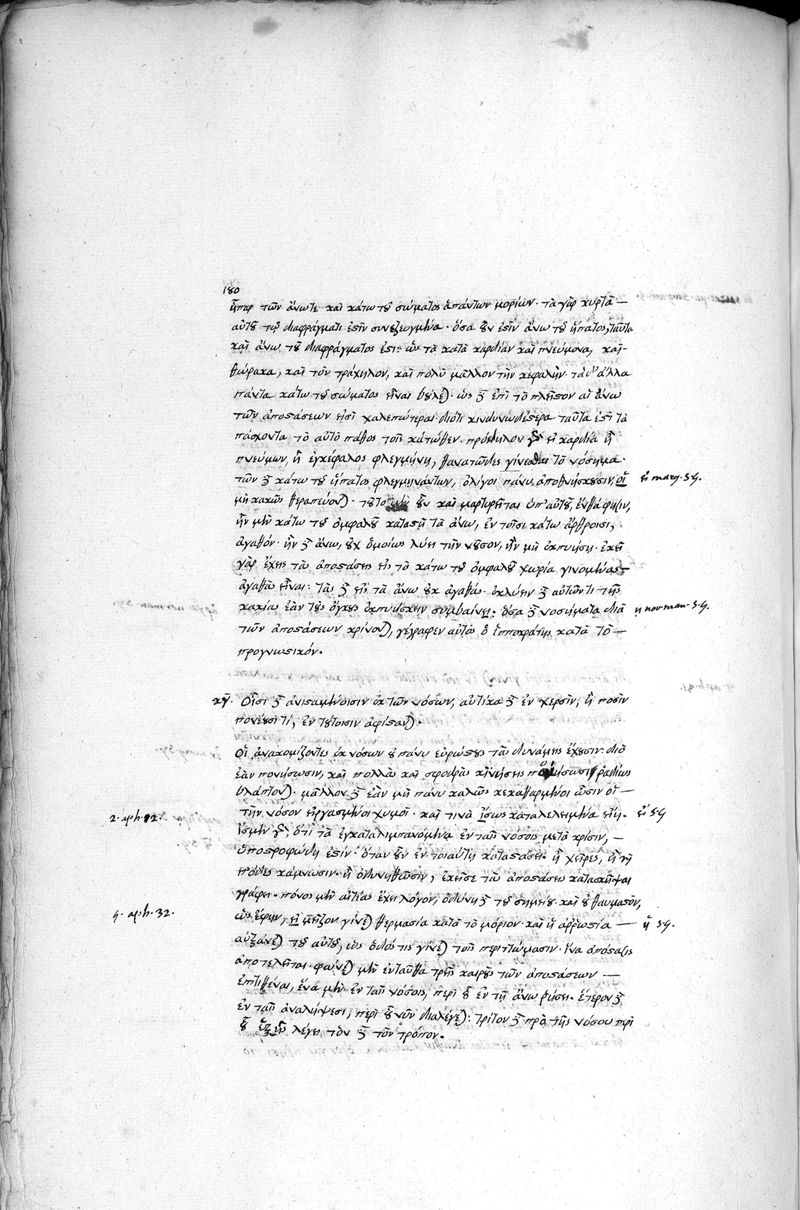 180
ἧπαρ τῶν ἄνωτε καὶ κάτω τοῦ σώματος ἁπάντων μορίων· τὰ γὰρ κυρτὰ —
αὐτοῦ τῷ διαφράγματι ἐστὶν συνεζευγμένα· ὅσα οὖν ἐστὶν ἄνω τοῦ ἥπατος, ταῦτα
καὶ ἄνω τοῦ διαφράγματος ἐστι· ὡς τὰ κατὰ καρδίαν καὶ πνεύμονα, καὶ
θώρακα, καὶ τὸν τράχηλον, καὶ πολὺ μᾶλλον τὴν κεφαλήν· τὰ δ' ἄλλα
πάντα κάτω τοῦ σώματος εἶναι βούλεται· ὡς δὲ ἐπὶ τὸ πλεῖστον αἱ ἄνω
τῶν ἀποστάσεων εἰσὶ χαλεπώτεραι· διότι κινδυνωδέστερα ταῦτα ἐστὶ τὰ
πάσχοντα τὸ αὐτὸ πάθος τοῖς κάτωθεν· πρόδηλον γὰρ εἰ καρδία ἢ
πνεύμων, ἢ ἐγκέφαλος φλεγμήνῃ, θανατῶδες γίνεσθαι τὸ νόσημα·
τῶν δὲ κάτω τοῦ ἥπατος φλεγμηνάντων, ὀλίγοι πάνυ ἀποθνήσκουσιν, οἳ
μὴ κακῶς θεραπεύονται· τοῦτο μὲν οὖν καὶ μαρτυρεῖται ὑπ' αὐτοῦ, ἔνθα φησὶν,
ἢν μὲν κάτω τοῦ ὀμφαλοῦ καταστῇ τὰ ἄνω, ἐν τοῖσι κάτω ἄρθροισι,
ἀγαθόν· ἢν δὲ ἄνω, οὐχ ὁμοίως λύει τὴν νοῦσον, ἢν μὴ ἐκπυήσῃ· ἐκεῖ
γὰρ ἔχεις τὰς ἀποστάσεις εἰς τὸ κάτω τοῦ ὀμφαλοῦ χωρία γινομένας
ἀγαθὰς εἶναι· τὰς δὲ εἰς τὰ ἄνω οὐκ ἀγαθάς· ἐκλύειν δὲ αὐτῶν τι τῆς
κακίας ἐὰν τοὺς ὄγκους ἐκπυΐσκειν συμβαίνει· ὅσα δὲ νοσήματα διὰ
τῶν ἀποστάσεων κρίνονται, γέγραφεν αὐτὸς ὁ Ἱπποκράτης κατὰ τὸ —
προγνωστικόν.
κγ. Οἷσι δὲ ἀνισταμένοισιν ἐκ τῶν νόσων, αὐτίκα δὲ ἐν χερσὶν, ἢ ποσὶν
πονέουσί τι, ἐν τούτοισιν ἀφίστανται.
Οἱ ἀνακομίζοντες ἐκ νόσων οὐ πάνυ εὐρώστους τὰς δυνάμεις ἔχουσιν· διὸ
ἐὰν πονήσωσιν, καὶ πολλὰς καὶ σφοδρὰς κινήσεις ποιήσωσι ῥᾳδίως
βλάπτονται· μᾶλλον δὲ ἐὰν μὴ πάνυ καλῶς κεκαθαρμένοι ὦσιν οἱ —
τὴν νόσον εἰργασμένοι χυμοί· καὶ τινὰ ἴσως καταλελειμμένα εἴη·
ἴσμεν γὰρ, ὅτι τὰ ἐγκαταλιμπανόμενα ἐν ταῖς νόσοις μετὰ κρίσιν, —
ὑποστροφώδη ἐστίν· ὅταν οὖν ἐν τοιαύτῃ καταστάσει ἢ χεῖρες, ἢ οἱ
πόδες κάμνωσιν· ἢ ὀδυνηθῶσιν, ἐκεῖσε τὰς ἀποστάσεις κατασκῆψαι
γράφει· πόνος μὲν αἰτίας ἔχει λόγον, ὀδύνη δὲ τοῦ σημείου καὶ οὐ θαυμαστόν,
ὡς ἔφην, εἰ μεῖζον γίνεται θερμασία κατὰ τὸ μόριον· καὶ ἡ ἀῤῥωστία —
αὐξάνεται τοῦ αὐτοῦ, ὡς ὁδός τις γίνεται τοῖς περιττώμασιν· ἵνα ἀπόστασις
ἀποτελεῖται· φαίνεται μὲν ἐνταῦθα τρεῖς καιροὺς τῶν ἀποστάσεων —
ἐπιτιθέναι, ἕνα μὲν ἐν ταῖς νόσοις, περὶ οὗ ἐν τῇ ἄνω ῥήσει· ἕτερον δὲ
ἐν ταῖς ἀναλήψεσι, περὶ οὗ νῦν διαλέγεται· τρίτον δὲ πρὸ τῆς νόσου περὶ
οὗ ἑξῆς λέγει τὸν δὲ τὸν τρόπον.
2. aph. 12.
4. aph. 32.